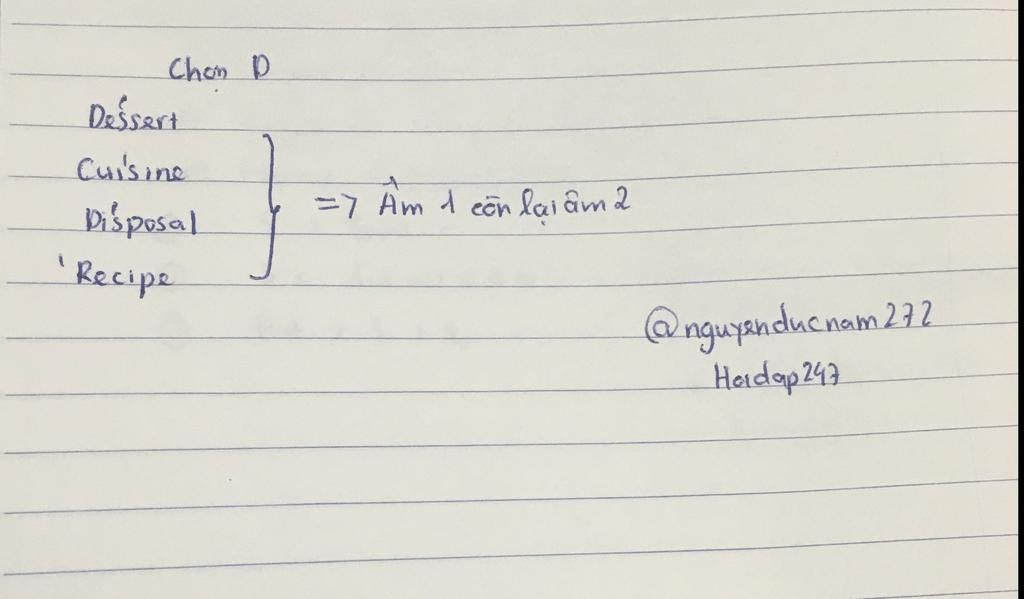 Chọn D
De'ssert
Cui'sine
Di'sposal
'Recipe
=> Âm 1 còn lại âm 2
@nguyenducnam272
Hoidap247